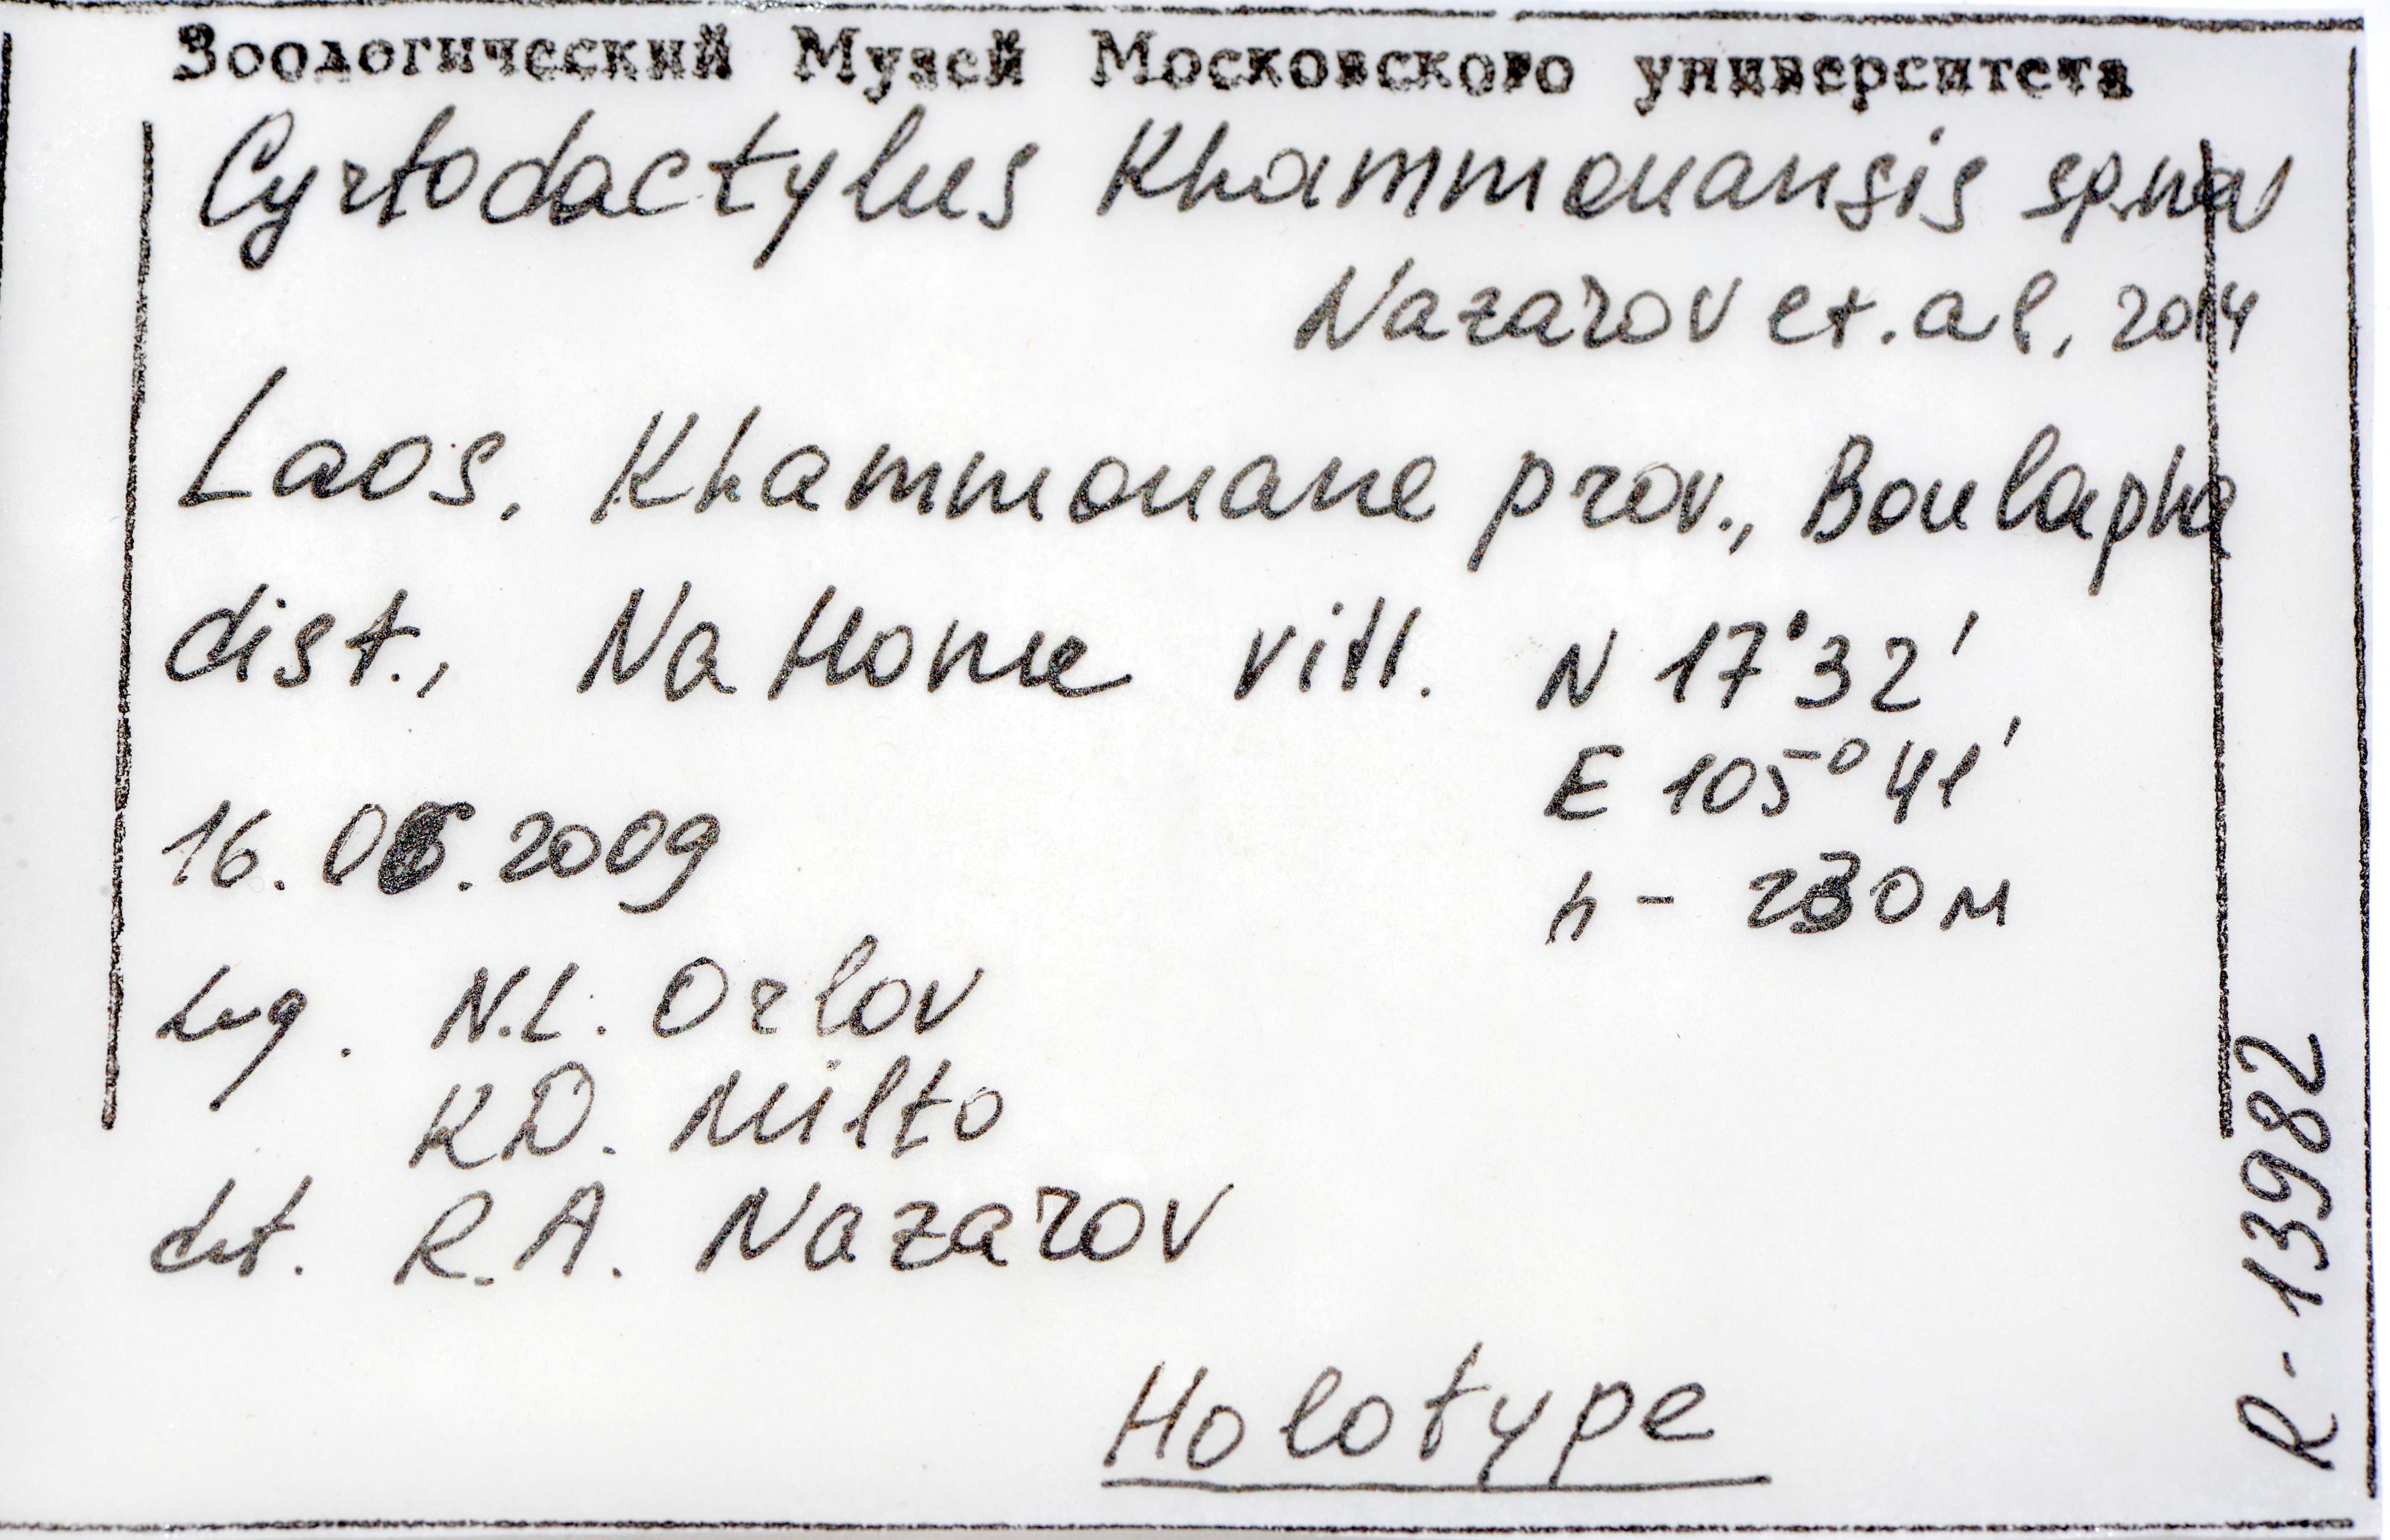 Зоологический Музей Московского университета
Cyrtodactylus Khammouansis sp.nov
Nazarov et.al, 2014
Laos, Khammouane prov., Boulapha
dist., Na Home vill. N 17°32',
E 105°41'
16.06.2009
h - 230 м
Leg. N.L. Orlov
K.D. Milto
det. R.A. Nazarov
Holotype
R-13982